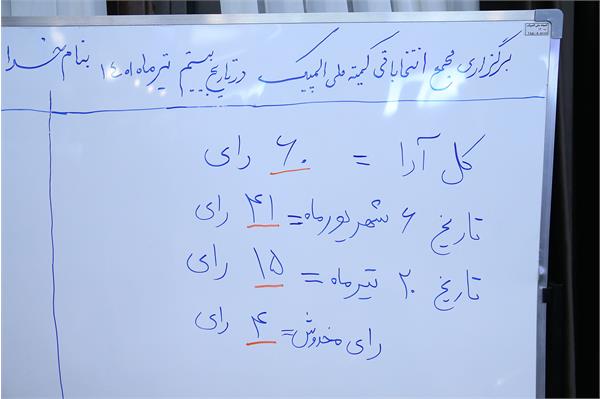 بنام خدا
برگزاری مجمع انتخاباتی کمیته ملی المپیک در تاریخ بیستم تیرماه ۱۴۰۱
کل آرا = ۶۰ رای
تاریخ ۶ شهریورماه = ۴۱ رای
تاریخ ۲۰ تیرماه = ۱۵ رای
رای مخدوش = ۴ رای